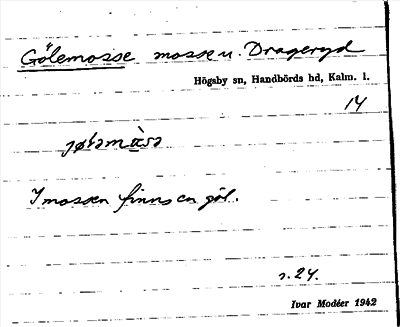 Gölemosse mosse u. Drageryd
Högsby sn, Handbörds hd, Kalm. l.
14
I mossen finns en göl.
s. 24.
Ivar Modéer 1942